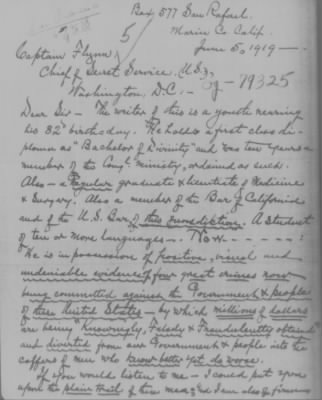 Box 577 San Rafael.
Marin Co Calif.
5
June 5, 1919—
Captain Flynn
Chief of Secret Service, U.S.,
79325
Washington, D.C.—
Dear Sir— The writer of this is a youth nearing
his 82d birthday. He holds a first class di-
ploma as "Bachelor of Divinity" and was ten years a
member of the Congl. ministry, ordained as such.
Also— a Regular graduate & licentiate of Medicine
& Surgery. Also a member of the Bar of California
and of the U.S. Bar of this Jurisdiction. A Student
of ten or more languages—. Now— - - - - - :
He is in possession of positive, visual and
undeniable evidence of four great crimes now
being committed against the Government & people
of these United States— by which millions of dollars
are being "Knowingly, Falsely & Fraudulently obtained"
and diverted from our Government & people into the
coffers of men who know better yet do worse.
If you would listen to me— I could put you
upon the plain trail of these men, and I am also